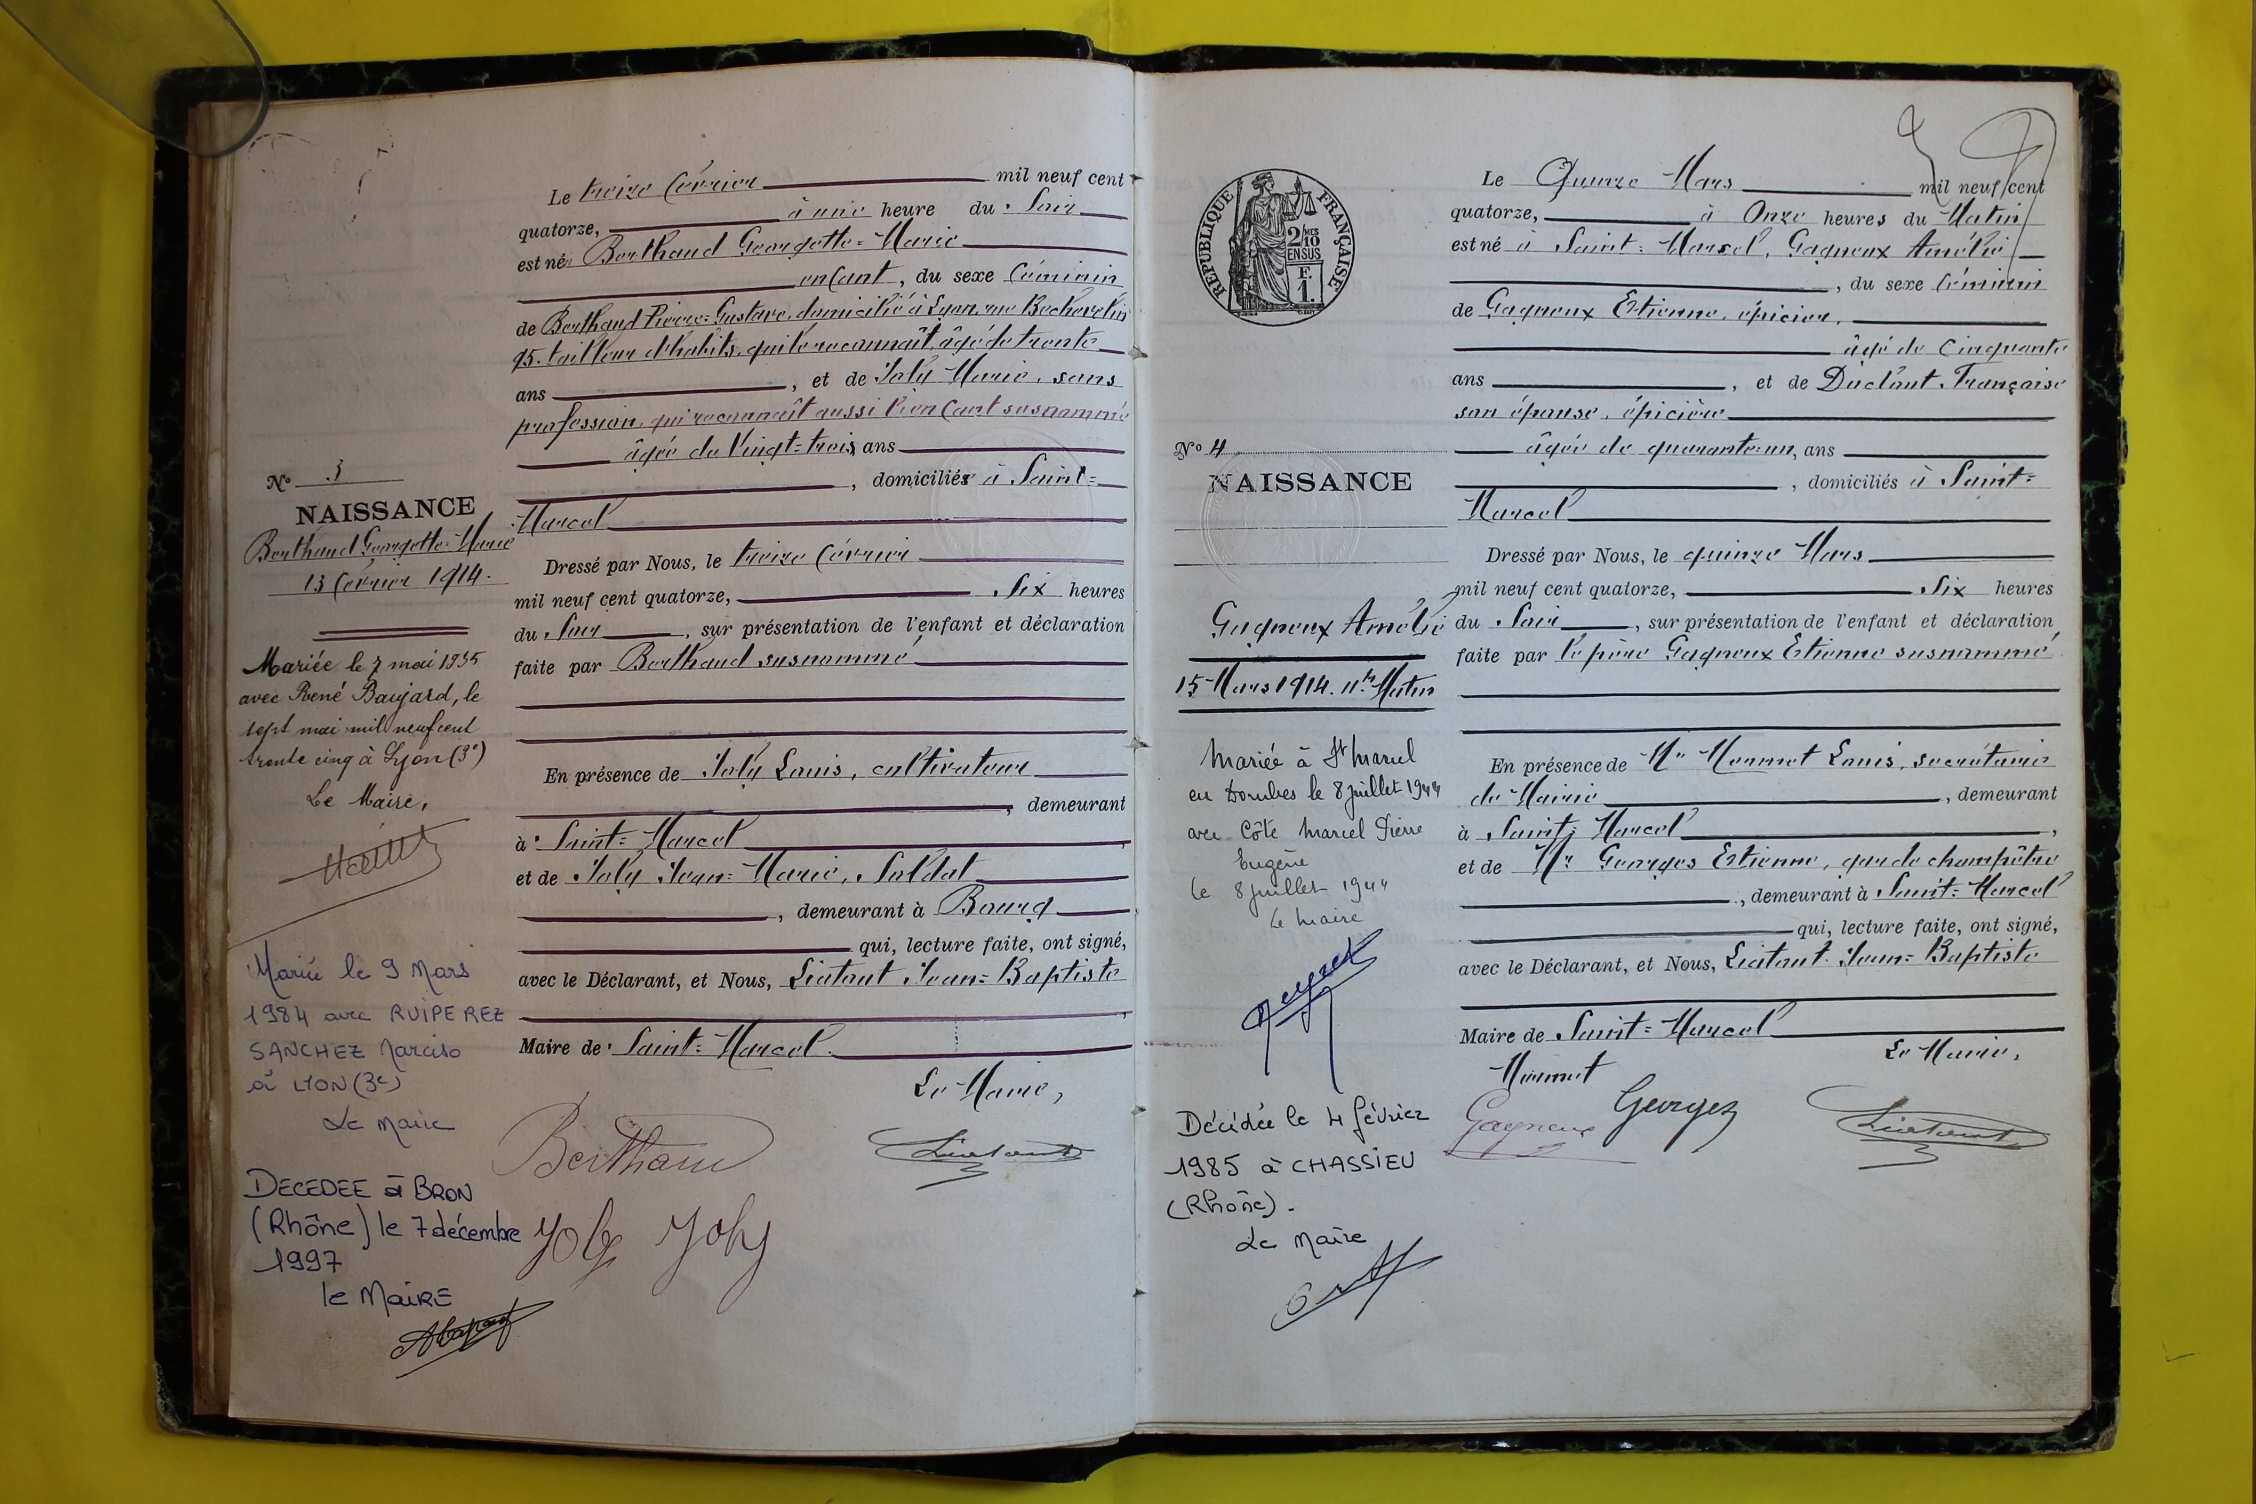 Le treize février mil neuf cent
quatorze, à une heure du Soir
est né Berthaud Georgette=Marie
enfant, du sexe féminin
de Berthaud Pierre=Gustave, domicilié à Lyon, rue Béchevelin
95, tailleur d'habits, qui le reconnaît, âgé de trente
ans , et de Joly Marie, sans
profession, qui reconnaît aussi l'enfant susnommé
âgée de Vingt=trois ans
, domiciliés à Saint=
Marcel
Dressé par Nous, le treize février
mil neuf cent quatorze, Six heures
du Soir , sur présentation de l'enfant et déclaration
faite par Berthaud susnommé
En présence de Joly Louis, cultivateur
, demeurant
à Saint=Marcel ,
et de Joly Jean=Marie, Soldat
, demeurant à Bourg
qui, lecture faite, ont signé,
avec le Déclarant, et Nous, Liatout Jean=Baptiste
Maire de Saint=Marcel.
Le Maire,
Berthaud
Liatout
Joly Joly
No 3
NAISSANCE
Berthaud Georgette=Marie
13 février 1914.
Mariée le 7 mai 1935
avec René Baujard, le
sept mai mil neuf cent
trente cinq à Lyon (3e)
Le Maire,
Mariée le 9 Mars
1984 avec RUIPEREZ
SANCHEZ Narciso
à LYON (3e)
Le Maire
DECEDEE à BRON
(Rhône) le 7 décembre
1997
le MAIRE
RÉPUBLIQUE FRANÇAISE
2/10MES
EN SUS
F.
1.
Le Quinze Mars mil neuf cent
quatorze, à Onze heures du Matin
est né à Saint=Marcel, Gagneux Amélie
, du sexe féminin
de Gagneux Etienne, épicier,
âgé de cinquante
ans , et de Duclaut Françoise
son épouse, épicière
âgée de quarante=un, ans
, domiciliés à Saint=
Marcel
Dressé par Nous, le quinze Mars
mil neuf cent quatorze, Six heures
du Soir , sur présentation de l'enfant et déclaration
faite par le père Gagneux Etienne susnommé
En présence de Mr Monnet Louis, secrétaire
de Mairie , demeurant
à Saint=Marcel ,
et de Mr Georges Etienne, garde champêtre
, demeurant à Saint=Marcel
qui, lecture faite, ont signé,
avec le Déclarant, et Nous, Liatout Jean=Baptiste
Maire de Saint=Marcel
Le Maire,
Monnet
Gagneux Georges Liatout
No 4
NAISSANCE
Gagneux Amélie
15 Mars 1914. 11h Matin
Mariée à St Marcel
en Dombes le 8 juillet 1944
avec Côte Marcel Pierre
Eugène
le 8 juillet 1944
Le Maire
Décédée le 4 février
1985 à CHASSIEU
(Rhône).
Le Maire